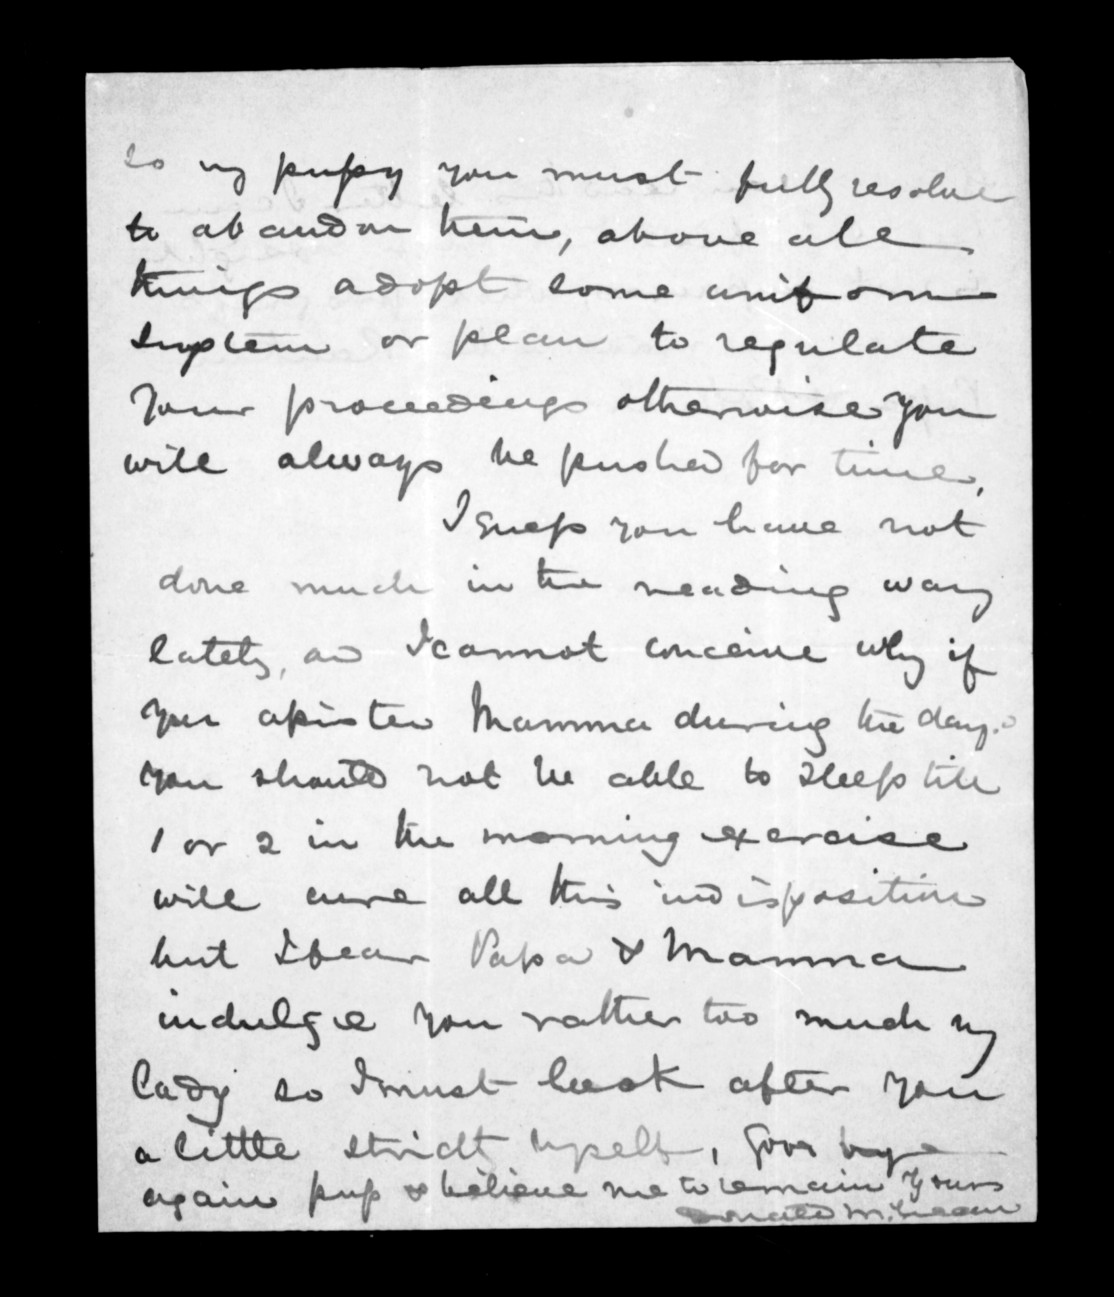 so my pupsy you must fully resolve
to abandon them, above all
things adopt some uniform
system or plan to regulate
your proceedings otherwise you
will always be pushed for time,
I guess you have not
done much in the reading way
lately, and I cannot conceive why if
you assisted Mamma during the day.
you should not be able to sleep till
1 or 2 in the morning exercise
will cure all this indisposition
but I fear Papa & Mamma
indulge you rather too much my
lady so I must look after you
a little strickt myself, Good bye
again pup & believe me to remain Yours
Donald McLean